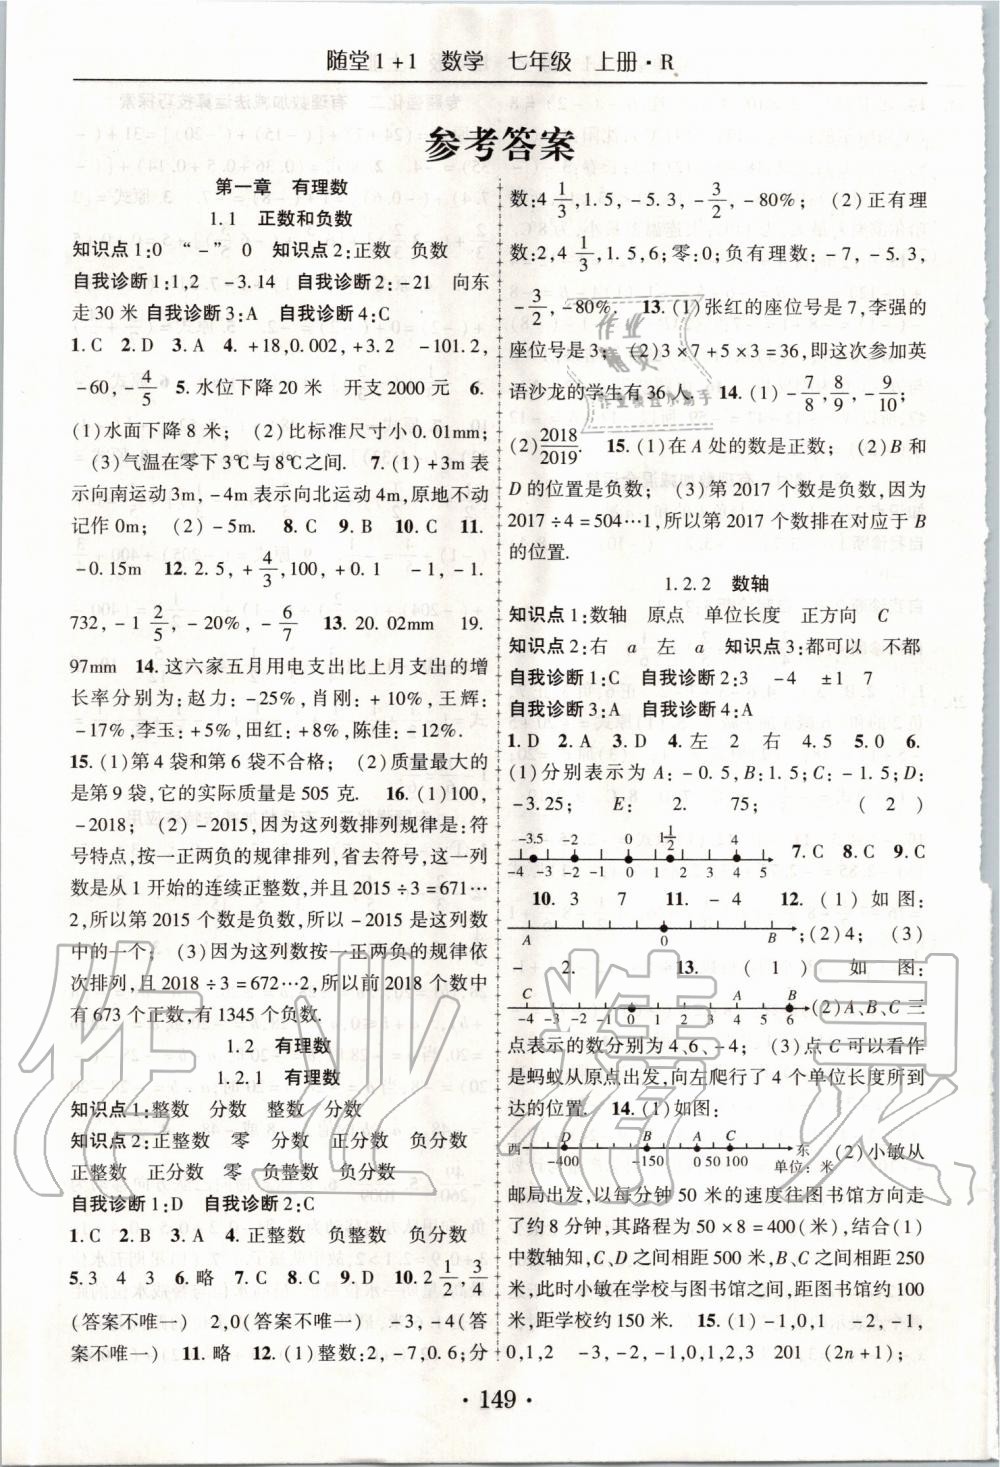 随堂1+1 数学 七年级 上册·R
参考答案
第一章 有理数
1.1 正数和负数
知识点1:0 “-” 0 知识点2:正数 负数
自我诊断1:1,2 -3.14 自我诊断2:-21 向东
走30米 自我诊断3:A 自我诊断4:C
1.C 2.D 3.A 4.+18,0.002,+3.2 -101.2,
-60,-4/5 5.水位下降20米 开支2000元 6.
(1)水面下降8米; (2)比标准尺寸小0.01mm;
(3)气温在零下3℃与8℃之间. 7.(1)+3m表
示向南运动3m,-4m表示向北运动4m,原地不动
记作0m; (2)-5m. 8.C 9.B 10.C 11.
-0.15m 12.2.5,+4/3,100,+0.1 -1.
732,-1 2/5,-20%,-6/7 13.20.02mm 19.
97mm 14.这六家五月用电支出比上月支出的增
长率分别为:赵力:-25%,肖刚:+10%,王辉:
-17%,李玉:+5%,田红:+8%,陈佳:-12%.
15.(1)第4袋和第6袋不合格; (2)质量最大的
是第9袋,它的实际质量是505克. 16.(1)100,
-2018; (2)-2015,因为这列数排列规律是:符
号特点,按一正两负的规律排列,省去符号,这一列
数是从1开始的连续正整数,并且2015÷3=671…
2,所以第2015个数是负数,所以-2015是这列数
中的一个; (3)因为这列数按一正两负的规律依
次排列,且2018÷3=672…2,所以前2018个数中
有673个正数,有1345个负数.
1.2 有理数
1.2.1 有理数
知识点1:整数 分数 整数 分数
知识点2:正整数 零 分数 正分数 负分数
正整数 正分数 零 负整数 负分数
自我诊断1:D 自我诊断2:C
1.C 2.B 3.A 4.正整数 负整数 负分数
5.3 4 3 6.略 7.C 8.C 9.D 10.2 1/2,3/4
(答案不唯一) 2,0(答案不唯一) -3,-4(答
案不唯一) 11.略 12.(1)整数:2,-7,0.6;分
数:4 1/3,1.5,-5.3,-3/2,-80%; (2)正有理
数:2,4 1/3,1.5,6;零:0;负有理数:-7,-5.3,
-3/2,-80%. 13.(1)张红的座位号是7,李强的
座位号是3; (2)3×7+5×3=36,即这次参加英
语沙龙的学生有36人. 14.(1)-7/8,8/9,-9/10;
(2)2018/2019. 15.(1)在A处的数是正数; (2)B和
D的位置是负数; (3)第2017个数是负数,因为
2017÷4=504…1,所以第2017个数排在对应于B
的位置.
1.2.2 数轴
知识点1:数轴 原点 单位长度 正方向 C
知识点2:右 a 左 a 知识点3:都可以 不都
自我诊断1:C 自我诊断2:3 -4 ±1 7
自我诊断3:A 自我诊断4:A
1.D 2.A 3.D 4.左 2 右 4.5 5.0 6.
(1)分别表示为A:-0.5,B:2,C:-1.5;D:
-3.25; E: 2. 75; (2)
-3.5 -2 0 1 1/2 4
-4 -3 -2 -1 0 1 2 3 4 5 7.C 8.C 9.C
10. 3 7 11. -4 12.(1)如图:
A 0 B ;(2)4; (3)
-2. 13. (1) 如图:
C A B
-4 -3 -2 -1 0 1 2 3 4 5 6 (2)A、B、C三
点表示的数分别为4、6、-4; (3)点C可以看作
是蚂蚁从原点出发,向左爬行了4个单位长度所到
达的位置. 14.(1)如图:
西 D B A C 东 (2)小敏从
-400 -150 0 50 100 单位:米
邮局出发,以每分钟50米的速度往图书馆方向走
了约8分钟,其路程为50×8=400(米),结合(1)
中数轴知,C、D之间相距500米,B、C之间相距250
米,此时小敏在学校与图书馆之间,距图书馆约100
米,距学校约150米. 15.(1)-1,0,1 -2,-1,
0,1,2 -3,-2,-1,0,1,2,3 201 (2n+1);
·149·
作业精灵